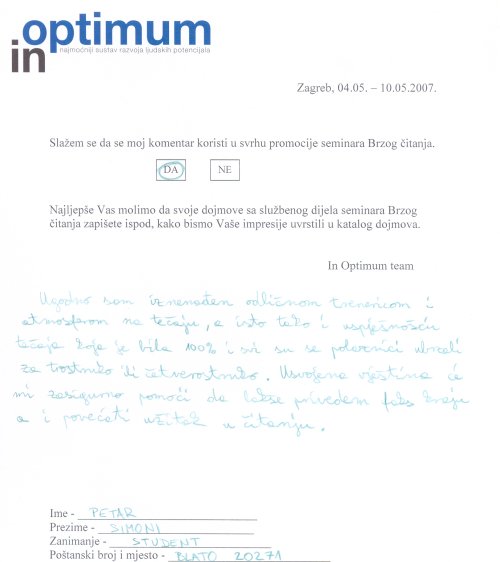 in optimum
najmoćniji sustav razvoja ljudskih potencijala
Zagreb, 04.05. – 10.05.2007.
Slažem se da se moj komentar koristi u svrhu promocije seminara Brzog čitanja.
DA NE
Najljepše Vas molimo da svoje dojmove sa službenog dijela seminara Brzog
čitanja zapišete ispod, kako bismo Vaše impresije uvrstili u katalog dojmova.
In Optimum team
Ugodno sam iznenađen odličnom trenericom i
atmosferom na tečaju, a isto tako i uspješnošću
tečaja koja je bila 100% i svi su se polaznici ubrzali
za trostruko ili četverostruko. Usvojena vještina će
mi zasigurno pomoći da lakše privedem faks kraju
a i povećati užitak u čitanju.
Ime - PETAR
Prezime - SIMONI
Zanimanje - STUDENT
Poštanski broj i mjesto - BLATO 20271